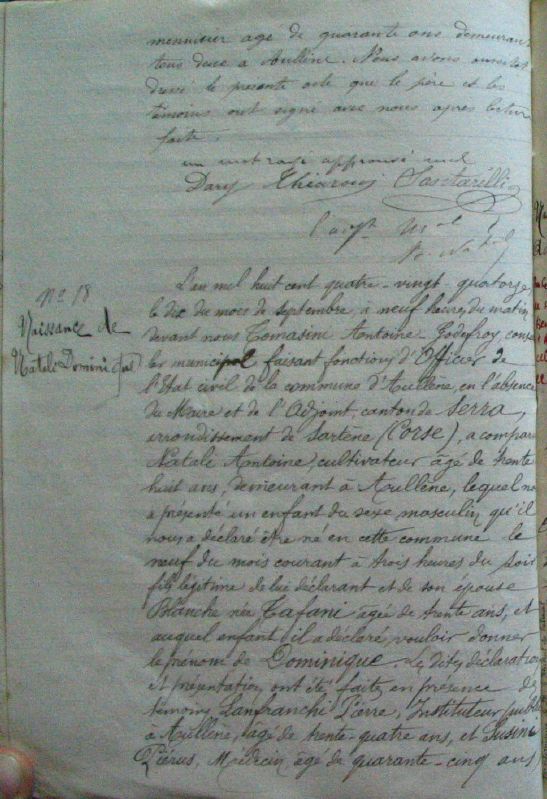 menuisier agé de quarante ans demeurant
tous deux a Aullène. Nous avons ensuite
dressé le présente acte que le père et les
témoins ont signé avec nous après lecture
faite.
un mot rayé approuvé nul
L'an mil huit cent quatre-vingt-quatorze,
le dix du mois de septembre, à neuf heures du matin
devant nous Tomasini Antoine Godefroy, conseil
ler municipal faisant fonctions d'Officier de
l'Etat civil de la commune d'Aullène, en l'absence
du Maire et de l'Adjoint, canton de Serra,
arrondissement de Sartène (Corse), a comparu
Natale Antoine, cultivateur âgé de trente
huit ans, demeurant à Aullène, lequel no
a présenté un enfant du sexe masculin, qu'il
nous a déclaré être né en cette commune le
neuf du mois courant à trois heures du soir
fils légitime de lui déclarant et de son épouse
Blanche née Tafani âgée de trente ans, et
auquel enfant il a déclaré vouloir donner
le prénom de Dominique. Les dites déclaration
et présentation ont été faites en présence de
témoins Lanfranchi Pierre, Instituteur public
à Aullène, âgé de trente-quatre ans, et Susini
Piérus, Médecin âgé de quarante-cinq ans
No 18
Naissance de
Natale Dominique